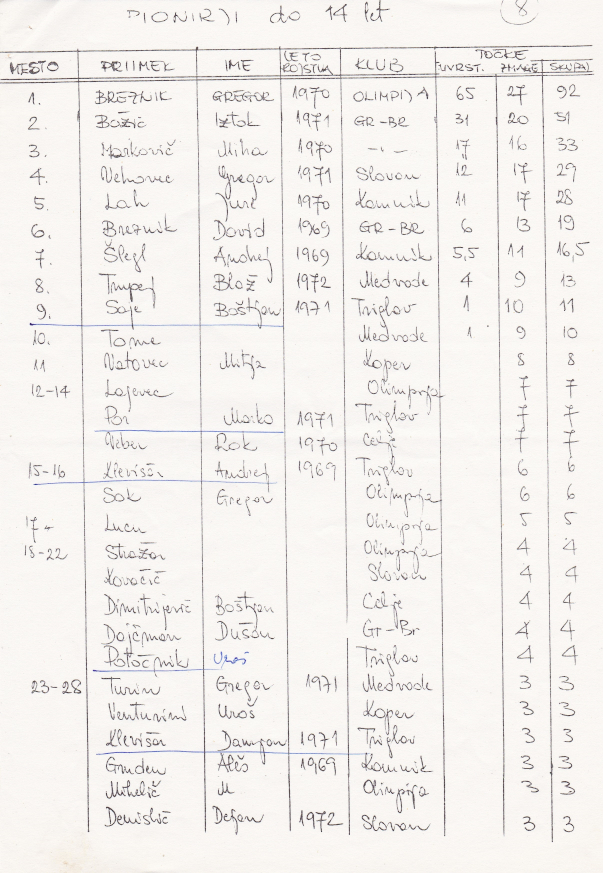 PIONIRJI do 14 let 8
MESTO PRIIMEK IME LETO ROJSTVA KLUB TOČKE
UVRST. ZMAGE SKUPAJ
1. BREZNIK GREGOR 1970 OLIMPIJA 65 27 92
2. Božič Iztok 1971 GR-BR 31 20 51
3. Markovič Miha 1970 -"- 17 16 33
4. Vehovec Gregor 1971 Slovan 12 17 29
5. Lah Jure 1970 Kamnik 11 17 28
6. Breznik David 1969 GR-BR 6 13 19
7. Šlegl Andrej 1969 Kamnik 5,5 11 16,5
8. Trupej Blaž 1972 Medvode 4 9 13
9. Saje Boštjan 1971 Triglav 1 10 11
10. Tome Medvode 1 9 10
11 Vatovec Mitja Koper 8 8
12-14 Lajevec Olimpija 7 7
Por Marko 1971 Triglav 7 7
Veber Rok 1970 Celje 7 7
15-16 Klevišar Andrej 1969 Triglav 6 6
Sok Gregor Olimpija 6 6
17. Lucu Olimpija 5 5
18-22 Stražar Olimpija 4 4
Kovačič Slovan 4 4
Dimitrijevič Boštjan Celje 4 4
Dajčman Dušan Gr-Br 4 4
Potočnik Uroš Triglav 4 4
23-28 Turin Gregor 1971 Medvode 3 3
Venturini Uroš Koper 3 3
Klevišar Damjan 1971 Triglav 3 3
Gruden Aleš 1969 Kamnik 3 3
Mihelič M Olimpija 3 3
Demišič Dejan 1972 Slovan 3 3